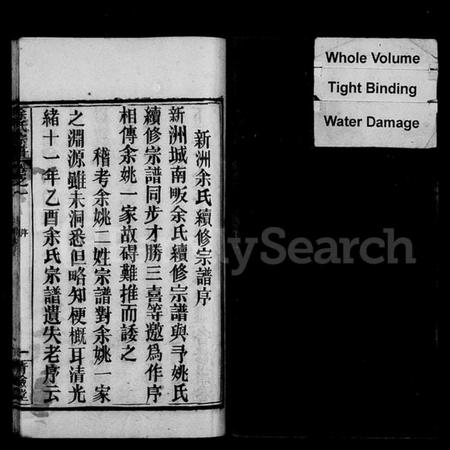 新洲余氏續修宗譜序
新洲城南畈余氏續修宗譜與予姚氏
續修宗譜同步才勝三喜等邀爲作序
相傳余姚一家故碍難推而諉之
稽考余姚二姓宗譜對余姚一家
之淵源雖未洞悉但略知梗概耳清光
緒十一年乙酉余氏宗譜遺失老序云
余氏宗譜
Whole Volume
Tight Binding
Water Damage
Search